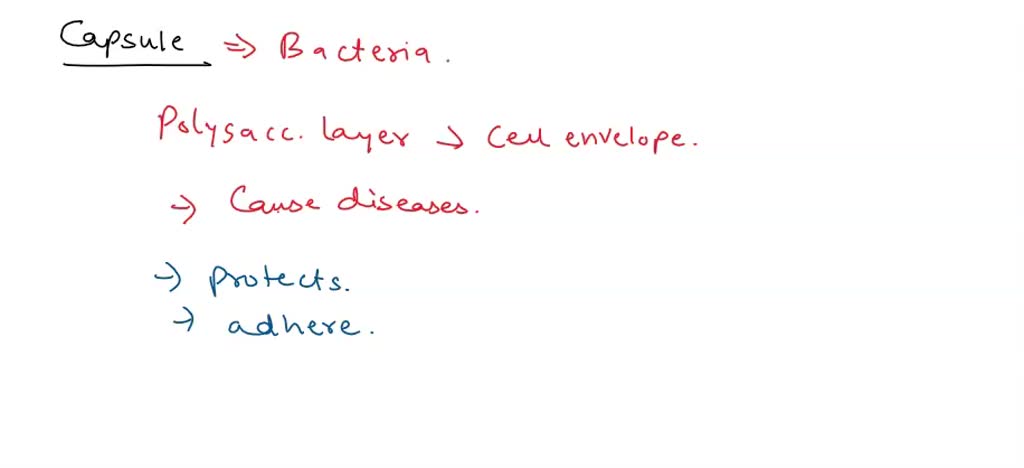 Capsule ⇒ Bacteria.
Polysacc. layer → Cell envelope.
→ Cause diseases.
→ protects.
→ adhere.